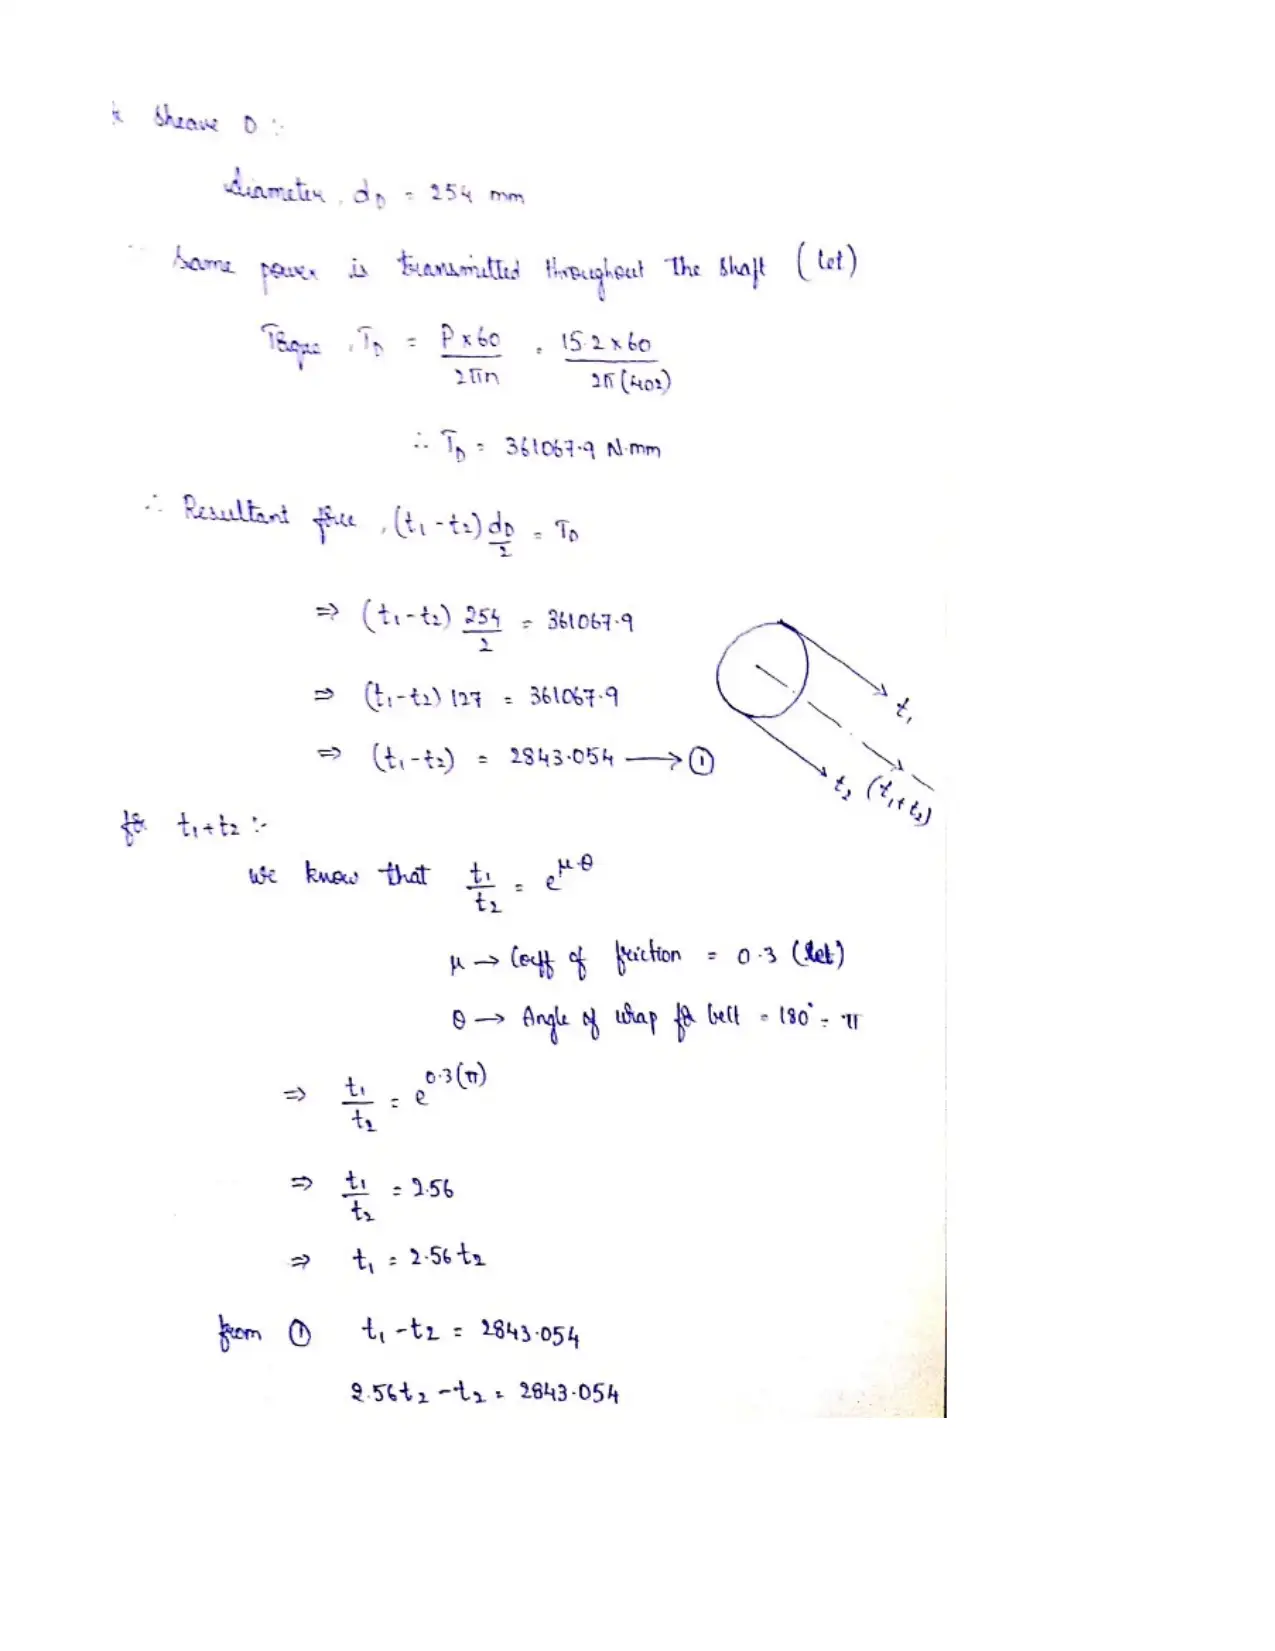 * Sheave D :-
diameter, dD = 254 mm
∵ Same power is transmitted throughout the shaft (let)
Torque, TD = P x 60 / 2πn = 15.2 x 60 / 2π(402)
∴ TD = 361067.9 N.mm
∴ Resultant force, (t1 - t2) dD/2 = TD
⇒ (t1 - t2) 254/2 = 361067.9
⇒ (t1 - t2) 127 = 361067.9
⇒ (t1 - t2) = 2843.054 → ①
t1
t2 (t1 + t2)
for t1 + t2 :-
we know that t1/t2 = e^μ.θ
μ → Coeff of friction = 0.3 (let)
θ → Angle of wrap for belt = 180° = π
⇒ t1/t2 = e^0.3(π)
⇒ t1/t2 = 2.56
⇒ t1 = 2.56 t2
from ① t1 - t2 = 2843.054
2.56t2 - t2 = 2843.054